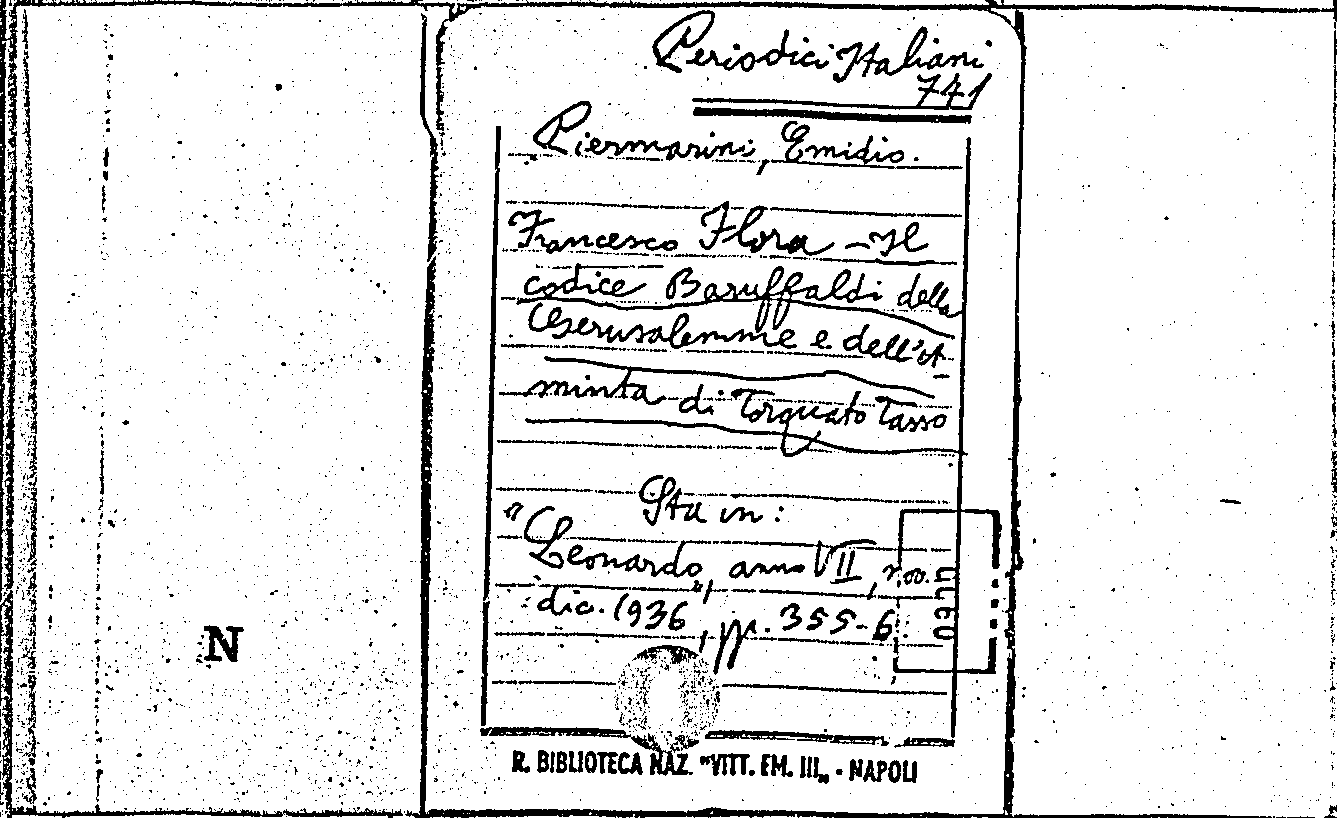 Periodici Italiani
741
Piermarini, Emidio.
Francesco Flora – Il
codice Baruffaldi della
Gerusalemme e dell'A-
minta di Torquato Tasso
Sta in:
"Leonardo", anno VII, nov.
dic. 1936, pp. 355-6.
N
R. BIBLIOTECA NAZ. "VITT. EM. III„ - NAPOLI